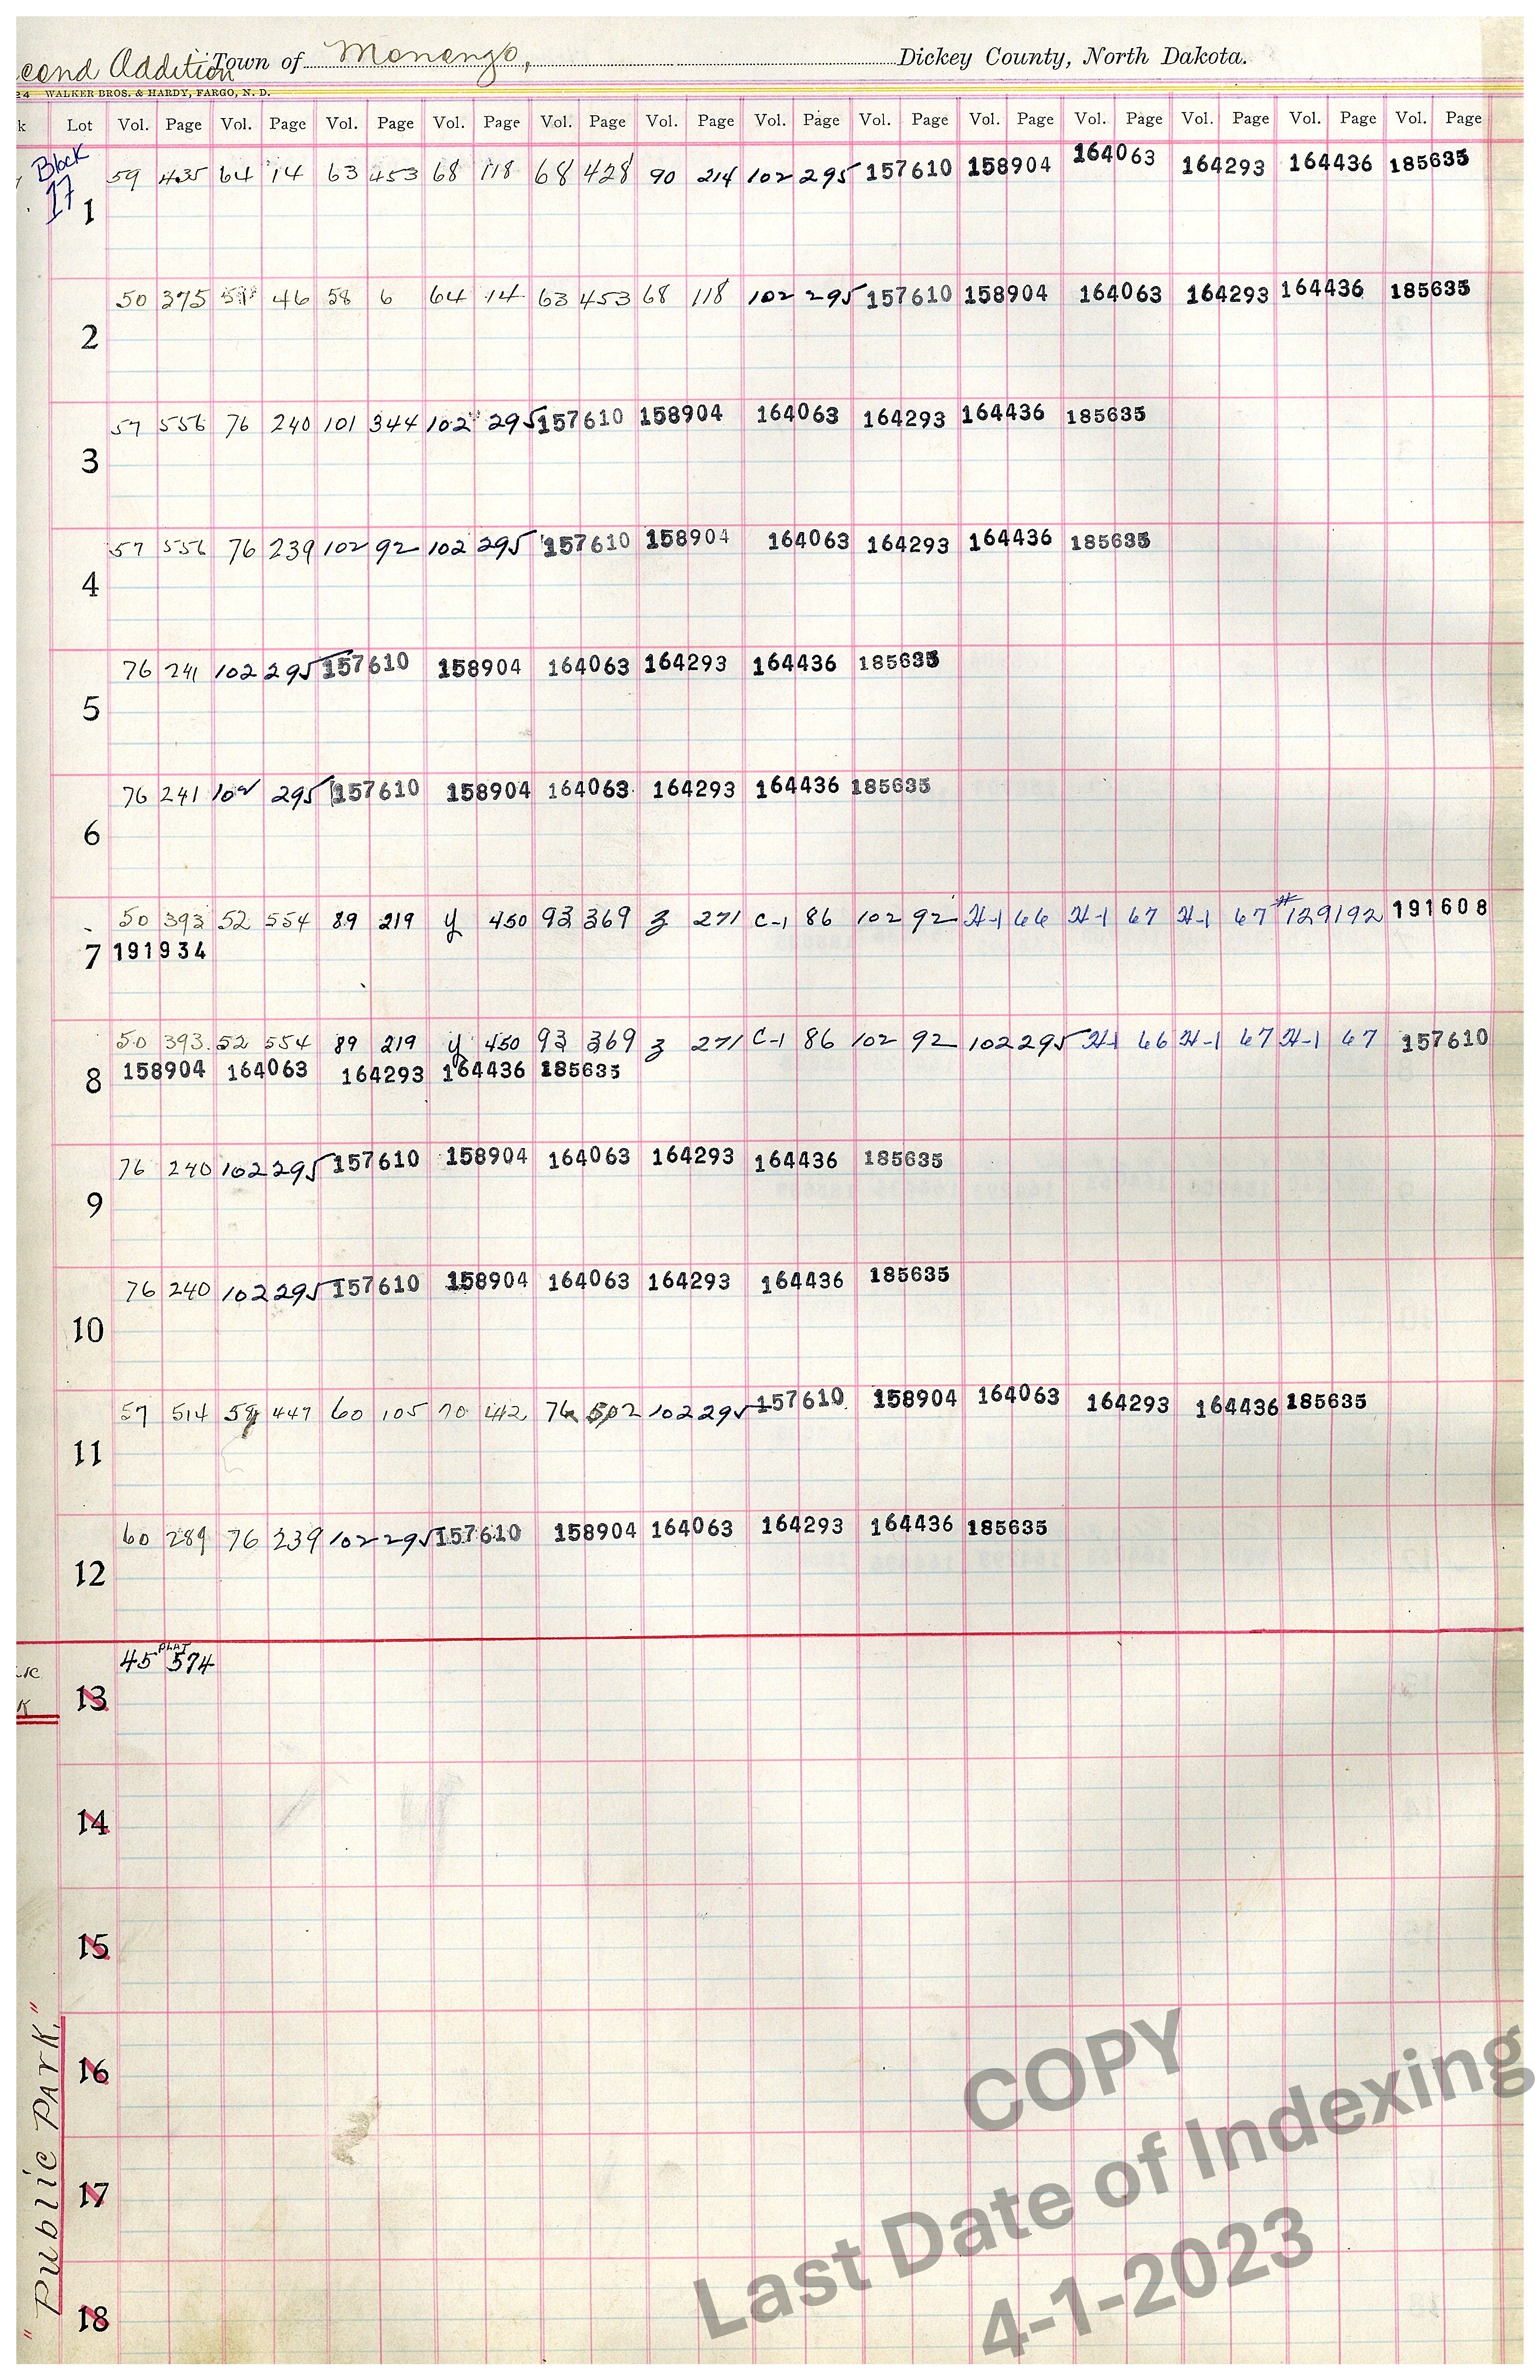 econd Addition Town of Monango, Dickey County, North Dakota.
24 WALKER BROS. & HARDY, FARGO, N. D.
k Lot Vol. Page Vol. Page Vol. Page Vol. Page Vol. Page Vol. Page Vol. Page Vol. Page Vol. Page Vol. Page Vol. Page Vol. Page Vol. Page
Block 17
1 59 435 64 14 63 453 68 118 68 428 90 214 102 295 157610 158904 164063 164293 164436 185635
2 50 375 46 58 6 64 14 63 453 68 118 102 295 157610 158904 164063 164293 164436 185635
3 57 556 76 240 101 344 102 295 157610 158904 164063 164293 164436 185635
4 57 556 76 239 102 92 102 295 157610 158904 164063 164293 164436 185635
5 76 241 102 295 157610 158904 164063 164293 164436 185635
6 76 241 102 295 157610 158904 164063 164293 164436 185635
50 393 52 554 89 219 y 450 93 369 z 271 C-1 86 102 92 H-1 66 H-1 67 H-1 67 #129192 191608
7 191934
50 393 52 554 89 219 y 450 93 369 z 271 C-1 86 102 92 102 295 H-1 66 H-1 67 H-1 67 157610
8 158904 164063 164293 164436 185635
9 76 240 102 295 157610 158904 164063 164293 164436 185635
10 76 240 102 295 157610 158904 164063 164293 164436 185635
11 57 514 59 447 60 105 70 442 76 502 102 295 157610 158904 164063 164293 164436 185635
12 60 289 76 239 102 295 157610 158904 164063 164293 164436 185635
PLAT
45 574
13
14
15
16
17
18
"Public Park."
COPY
Last Date of Indexing
4-1-2023